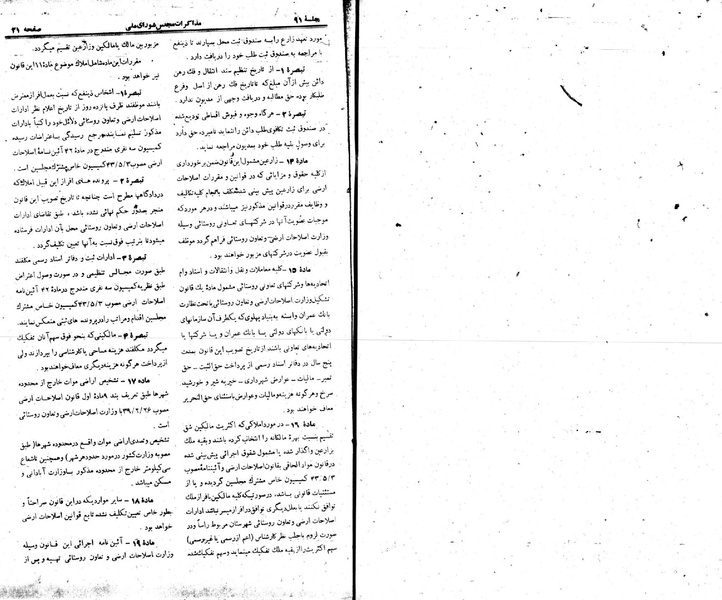 جلسهٔ ۹۱
مذاکرات مجلس شورای ملی
صفحه ۳۱
مورد تعهد زارع را به صندوق ثبت محل بسپارند تا ذینفع
با مراجعه به صندوق ثبت طلب خود را دریافت دارد .
تبصرهٔ ۱ - از تاریخ تنظیم سند انتقال و فک رهن
دائن بیش از آن مبلغ که تا تاریخ فک رهن از اصل وفرع
طلبکار بوده حق مطالبه و دریافت وجهی از مدیون ندارد .
تبصرهٔ ۲ - هرگاه وجوه و قبوض اقساطی تودیع شده
در صندوق ثبت تکافوی طلب دائن را ننماید نامبرده حق دارد
برای وصول بقیه طلب خود بمدیون مراجعه نماید .
مادهٔ ۱۴ - زارعین مشمول این قانون ضمن برخورداری
از کلیه حقوق و مزایائی که در قوانین و مقررات اصلاحات
ارضی برای زارعین پیش بینی شده مکلف بانجام کلیه تکالیف
و وظایف مقرر در قوانین مذکور نیز میباشند و در هر مورد که
موجبات عضویت آنها در شرکتهای تعاونی روستائی وسیله
وزارت اصلاحات ارضی و تعاون روستائی فراهم گردد موظف
بقبول عضویت در شرکتهای مزبور خواهند بود .
مادهٔ ۱۵ - کلیه معاملات و نقل و انتقالات و اسناد وام
اتحادیه‌ها و شرکتهای تعاونی روستائی مشمول مادهٔ یک قانون
تشکیل وزارت اصلاحات ارضی و تعاون روستائی با تحت نظارت
بانک عمران وابسته به بنیاد پهلوی که یکطرف آن سازمانهای
دولتی یا بانکهای دولتی یا بانک عمران و یا شرکتها یا
اتحادیه‌های تعاونی باشند از تاریخ تصویب این قانون بمدت
پنج سال در دفاتر اسناد رسمی از پرداخت حق الثبت - حق
تمبر - مالیات - عوارض شهرداری - خیریه شیر و خورشید
سرخ و هرگونه هزینه و مالیات و عوارض باستثنای حق التحریر
معاف خواهند بود .
مادهٔ ۱۶ - در مورد املاکی که اکثریت مالکین شق
تقسیم بنسبت بهرهٔ مالکانه را انتخاب کرده باشند و بقیه ملک
بزارعین واگذار شده یا مشمول شقوق اجرائی پیش بینی شده
در قانون مواد الحاقی بقانون اصلاحات ارضی و آئیننامهٔ مصوب
۴۳/۵/۳ کمیسیون خاص مشترک مجلسین گردیده و یا از
مستثنیات قانونی باشد ، در صورتیکه کلیه مالکین با فراز ملک
توافق نکنند یا بعلل دیگری توافق در افراز میسر نباشد ادارات
اصلاحات ارضی و تعاون روستائی شهرستان مربوط رأساً و در
صورت لزوم با جلب نظر کارشناس (اعم از رسمی یا غیررسمی)
سهم اکثریت را از بقیه ملک تفکیک مینماید و سهم تفکیک شده
مزبور بین مالک یا مالکین و زارعین تقسیم میگردد .
مقررات این ماده شامل املاک موضوع مادهٔ ۱۱ این قانون
نیز خواهد بود .
تبصرهٔ ۱ - اشخاص ذینفع که نسبت بعمل افراز معترض
باشند موظفند ظرف پانزده روز از تاریخ اعلام نظر ادارات
اصلاحات ارضی و تعاون روستائی دلائل خود را کتباً بادارات
مذکور تسلیم نمایند مرجع رسیدگی باعتراضات رسیده
کمیسیون سه نفری مندرج در مادهٔ ۴۲ آئین نامهٔ اصلاحات
ارضی مصوب ۴۳/۵/۳ کمیسیون خاص مشترک مجلسین است .
تبصرهٔ ۲ - پرونده های افراز این قبیل املاک که
در دادگاهها مطرح است چنانچه تا تاریخ تصویب این قانون
منجر بصدور حکم نهائی نشده باشد ، طبق تقاضای ادارات
اصلاحات ارضی و تعاون روستائی محل بآن ادارات فرستاده
میشود تا بترتیب فوق نسبت به آنها تعیین تکلیف گردد .
تبصرهٔ ۳ - ادارات ثبت و دفاتر اسناد رسمی مکلفند
طبق صورت مجالس تنظیمی و در صورت وصول اعتراض
طبق نظریه کمیسیون سه نفری مندرج در مادهٔ ۴۲ آئین نامه
اصلاحات ارضی مصوب ۴۳/۵/۳ کمیسیون خاص مشترک
مجلسین اقدام و مراتب را در پرونده های ثبتی منعکس نمایند .
تبصرهٔ ۴ - مالکینی که بنحو فوق سهم آنان تفکیک
میگردد مکلفند هزینه مساحی یا کارشناسی را بپردازند ولی
از پرداخت هرگونه هزینه دیگری معاف خواهند بود .
مادهٔ ۱۷ - تشخیص اراضی موات خارج از محدوده
شهرها طبق تعریف بند ۹ مادهٔ اول قانون اصلاحات ارضی
مصوب ۳۹/۲/۲۶ با وزارت اصلاحات ارضی و تعاون روستائی
است .
تشخیص و تصدی اراضی موات واقع در محدوده شهرها (طبق
مصوبه وزارت کشور در مورد حدود هر شهر) و همچنین تا شعاع
سی کیلومتر خارج از محدوده مذکور با وزارت آبادانی و
مسکن میباشد .
مادهٔ ۱۸ - سایر مواردیکه در این قانون صراحتاً و
بطور خاص تعیین تکلیف نشده تابع قوانین اصلاحات ارضی
خواهد بود .
مادهٔ ۱۹ - آئین نامه اجرائی این قانون وسیله
وزارت اصلاحات ارضی و تعاون روستائی تهیه و پس از